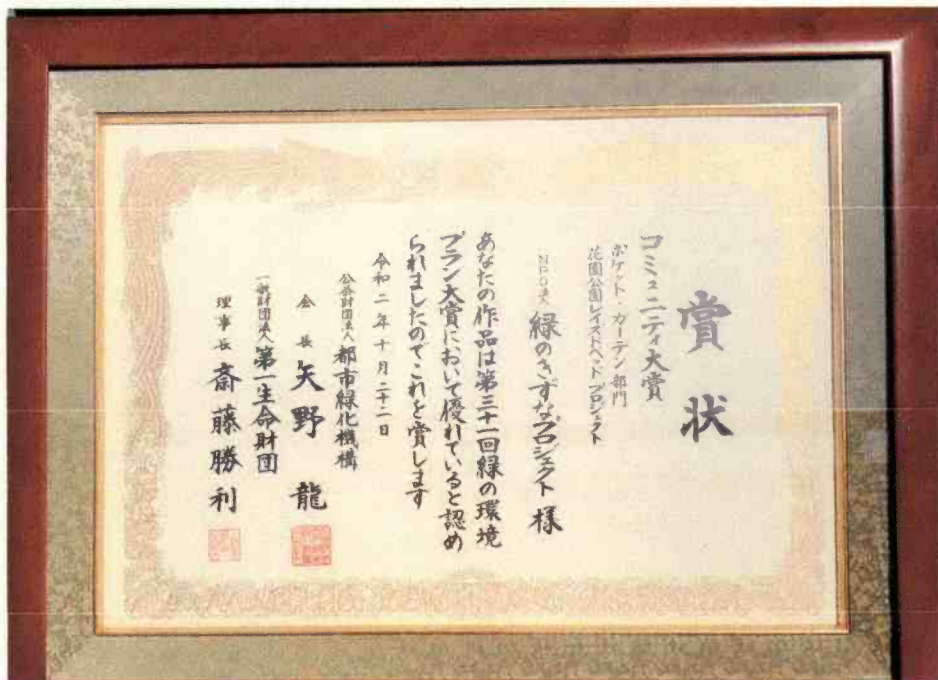 賞状
コミュニティ大賞
ポケット・ガーデン部門
花園公園レイズドベッドプロジェクト
NPO法人 緑のきずなプロジェクト 様
あなたの作品は第三十一回緑の環境
プラン大賞において優れていると認め
られましたのでこれを賞します
令和二年十月二十二日
公益財団法人 都市緑化機構
会長 矢野 龍
一般財団法人 第一生命財団
理事長 斎藤勝利